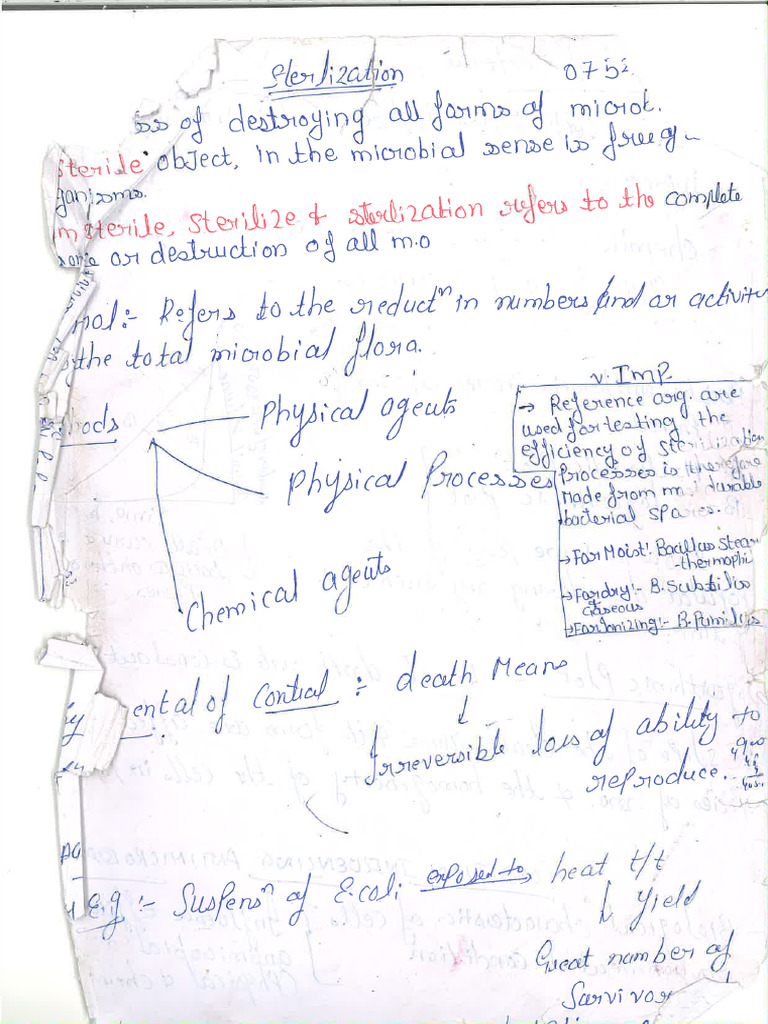 Sterlization 0752
ss of destroying all forms of microb.
sterile object, in the microbial sense is free of
ganisms.
m sterile, Sterilize & sterlization refers to the complete
or destruction of all m.o
rol:- Refers to the reductⁿ in numbers and or activity
the total microbial flora.
v. Imp
→ Reference org. are
used for testing the
efficiency of sterilization
Processes is therefore
made from m durable
bacterial spores.
→ For Moist:- Bacillus Stear
-thermophi
→ For dry:- B. Substilis
Gaseous
→ For Ionizing:- B. Pumilus
thods
Physical agents
Physical Processes
Chemical agents
ental of Control :- death Means
↓
Irreversible loss of ability to
reproduce.
E.g :- Suspensⁿ of E.coli exposed to heat t/t
↓ Yield
Great number of
Survivor